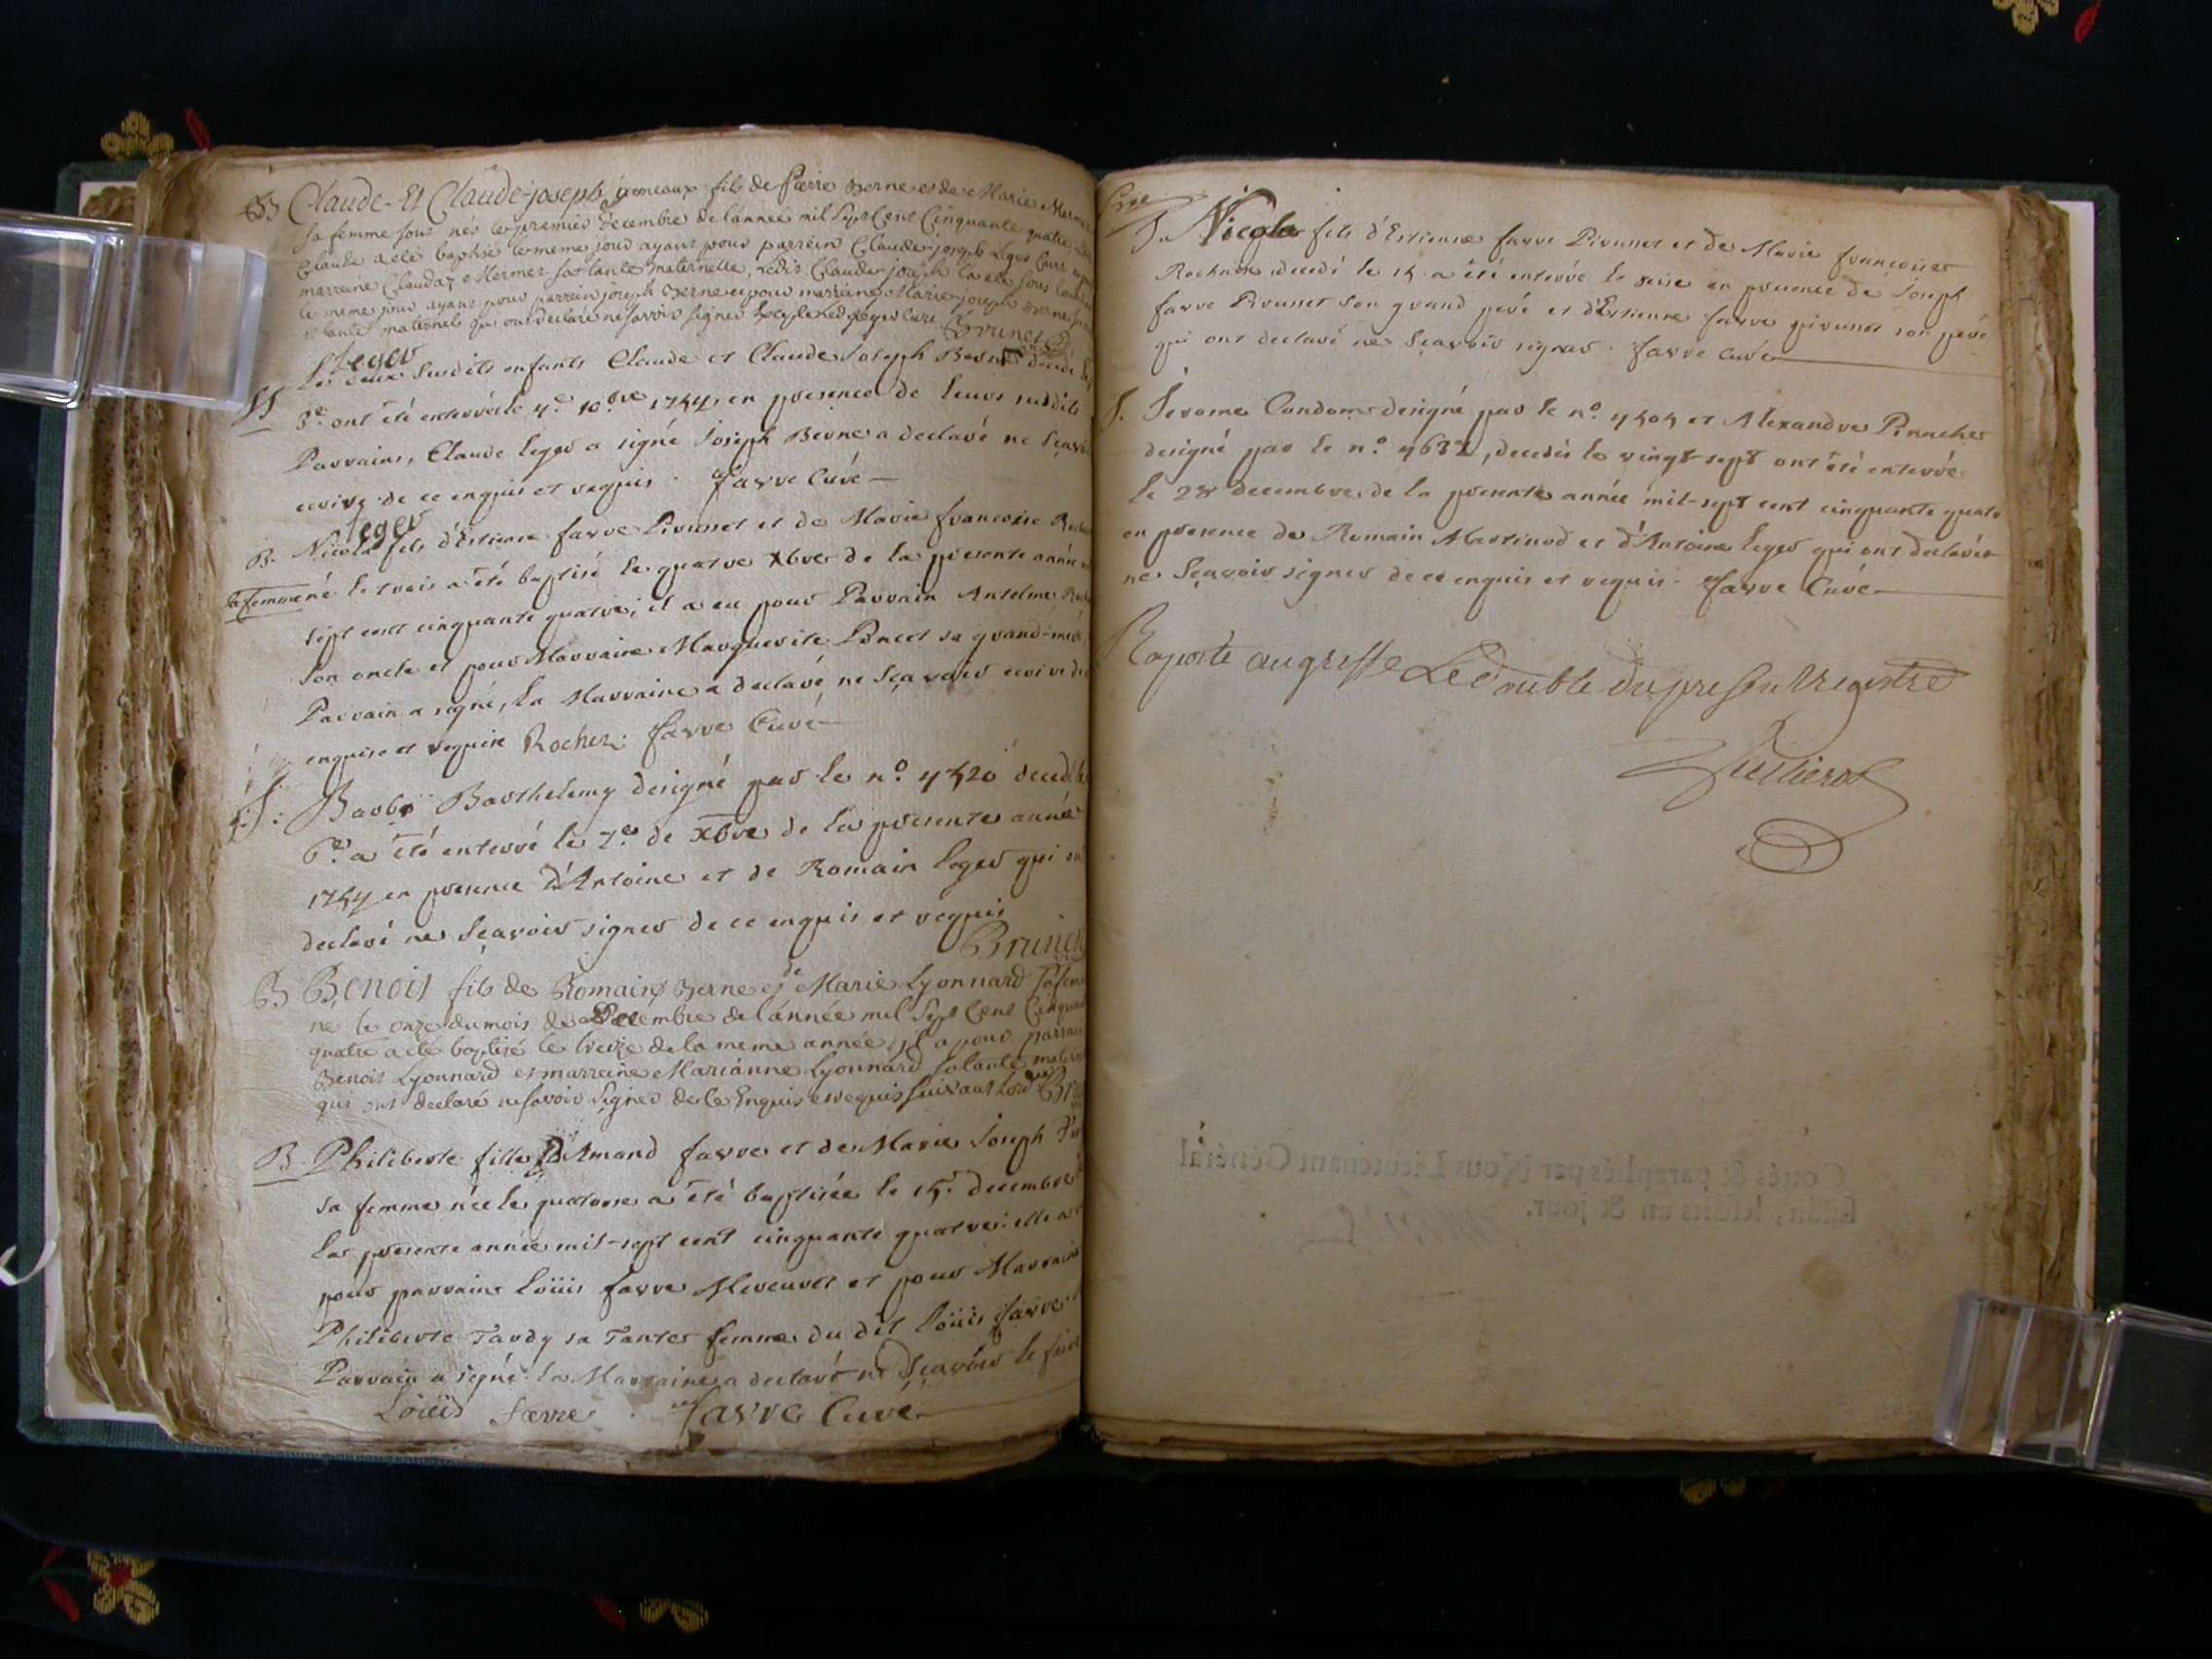 BB Claude - Et Claude-joseph jumeaux fils de Pierre Berne et de Marie
sa femme sous nés le premier Decembre de lannée mil Sept Cent Cinquante quatre,
Claude a été baptisé le meme jour ayant pour parrein Claude-joseph Leger
marreine Claudaz Mermet sa tante maternelle, Ledit Claude-joseph la été sous
le meme jour ayant pour parrein joseph Berne et pour marreine Marie-joseph Berne
tante maternel qui ont declaré ne savoir signer
Brunet
Leger
SS Les deux susdits enfants Claude et Claude Joseph Berne decedé
3e ont été enterrés le 4e 10bre 1754 en presence de leurs susdits
Parrains, Claude leger a signé Joseph Berne a declaré ne sçavoir
ecrire de ce enquis et requis. favre Curé
leger
B. Nicola fils d'Estienne favre Pirunet et de Marie francoise
sa femme né le trois a été baptisé le quatre Xbre de la presente année
sept cent cinquante quatre; il a eu pour Parrain Antelme
son oncle et pour Marraine Marguerite Poncet sa grand-mere
Parrain a signé, la Marraine a declaré ne sçavoir ecrire de
enquise et requise Rochez. favre Curé
S. Barbe Barthelemy designé par le no. 4520 decedé le
6e a été enterré le 7e de Xbre de la presente année
1754 en presence d'Antoine et de Romain leger qui ont
declaré ne sçavoir signer de ce enquis et requis
Brunet
B Benois fils de Romain Berne et de Marie Lyonnard sa
ne le onze du mois de Decembre de lánnée mil Sept Cent
quatre a été baptisé le treize de la meme année, il a pour
Benois Lyonnard et marreine Mariánne Lyonnard sa tante
qui ont declaré ne savoir Signer de Ce Enquis et requis suivant
B. Philiberte fille D'Amand favre et de Marie Joseph
sa femme née le quatorse a été baptisée le 15e decembre
la presente année mil-sept cent cinquante quatre: elle a
pour parrain Loüis favre Meveuret et pour Marraine
Philiberte Tardy sa Tante femme du dit Loüis favre
Parrain a signé la Marraine a declaré ne sçavoir le faire
Loüis favre favre Curé
S. Nicola fils d'Estienne favre Pirunet et de Marie francoise
decedé le 15 a été enterré le seise en presence de Joseph
favre Pirunet son grand peré et d'Estienne favre pirunet son peré
qui ont declaré ne sçavoir signer. favre curé
S. Jerome Condom designé par le no. 4505 et Alexandre
designé par le no. 4632, decedés le vingt-sept ont été enterré
le 28 decembre de la presente année mil-sept cent cinquante quatre
en presence de Romain Martinod et d'Antoine leger qui ont declarés
ne sçavoir signer de ce enquis et requis. favre Curé
Raporté au greffe Le Double du present registre
Cotés & paraphés par Nous Lieutenant Général
susdit, lesdits an & jour.